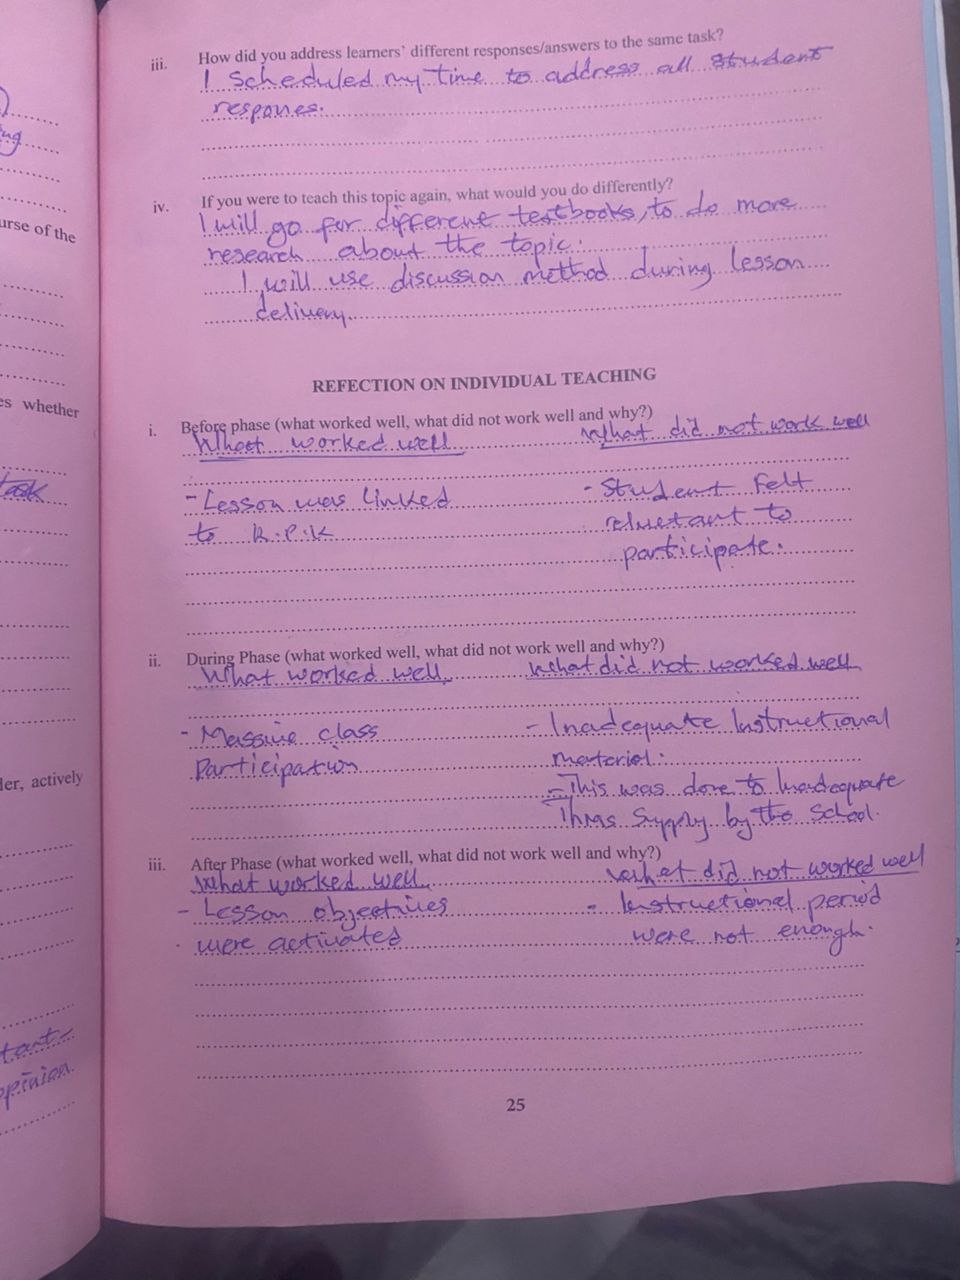 iii. How did you address learners' different responses/answers to the same task?
I scheduled my time to address all student
respones.
iv. If you were to teach this topic again, what would you do differently?
I will go for different textbooks, to do more
research about the topic.
I will use discussion method during lesson
delivery.
REFECTION ON INDIVIDUAL TEACHING
i. Before phase (what worked well, what did not work well and why?)
What worked well What did not work well
- Lesson was linked - Student felt
to R.P.K reluctant to
participate.
ii. During Phase (what worked well, what did not work well and why?)
What worked well What did not worked well
- Massive class - Inadequate Instructional
Participation material.
- This was done to Inadequate
Supply by the School.
iii. After Phase (what worked well, what did not work well and why?)
What worked well What did not worked well
- Lesson objectives - Instructional period
were activated were not enough.
25
urse of the
es whether
task
ler, actively
opinion.